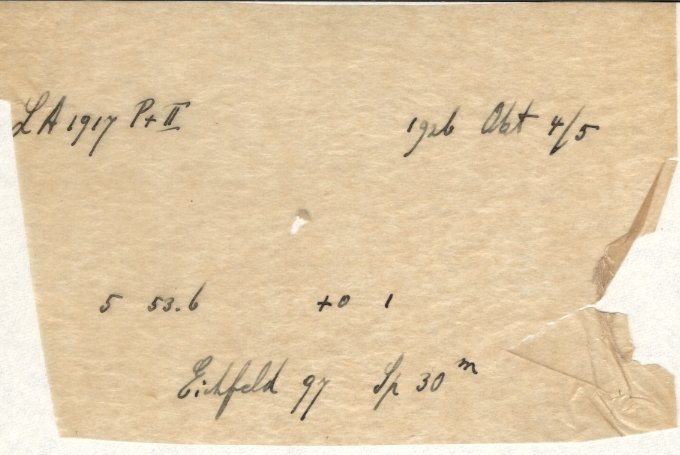 LA 1917 Pt II 1926 Okt 4/5
5 53.6 +0 1
Eichfeld 97 Sp 30 m